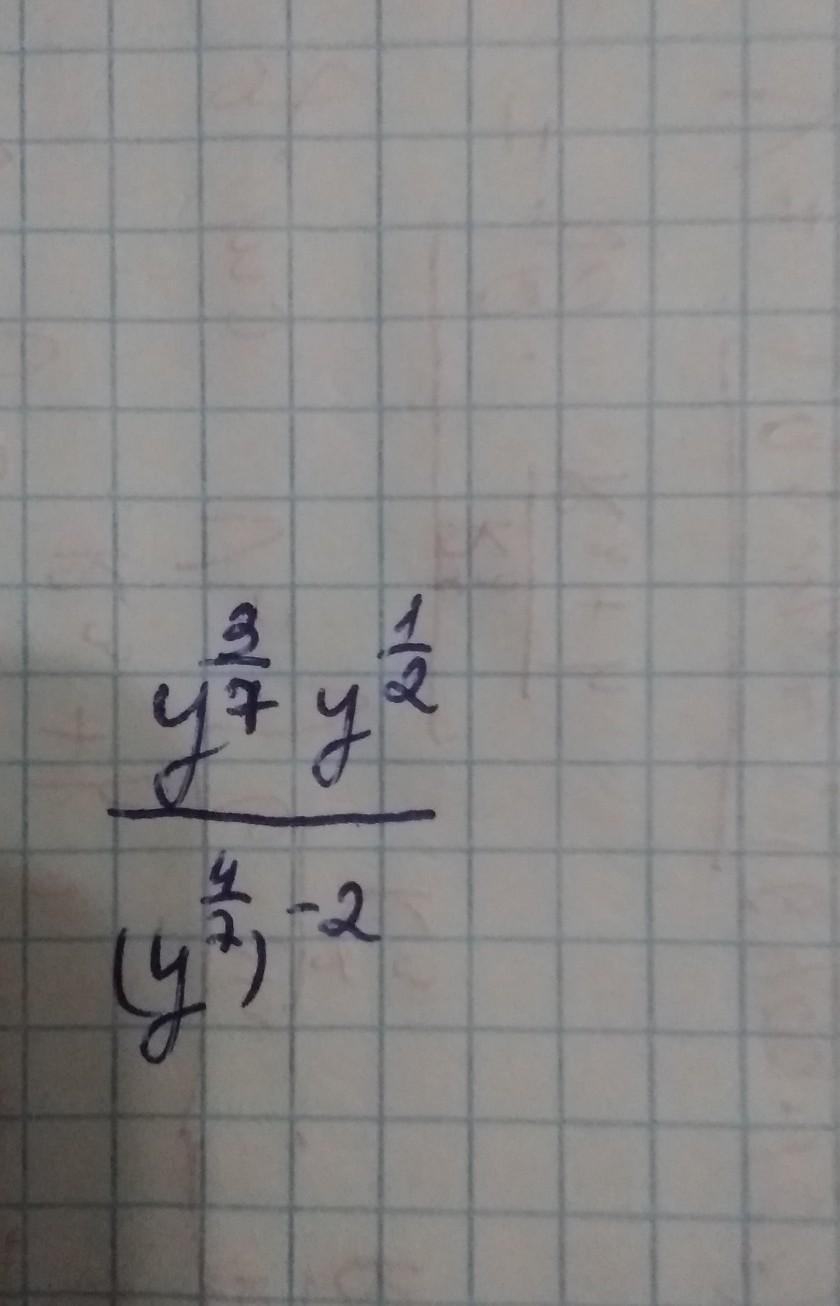 y^{\frac{3}{7}} y^{\frac{1}{2}}
(y^{\frac{4}{7}})^{-2}